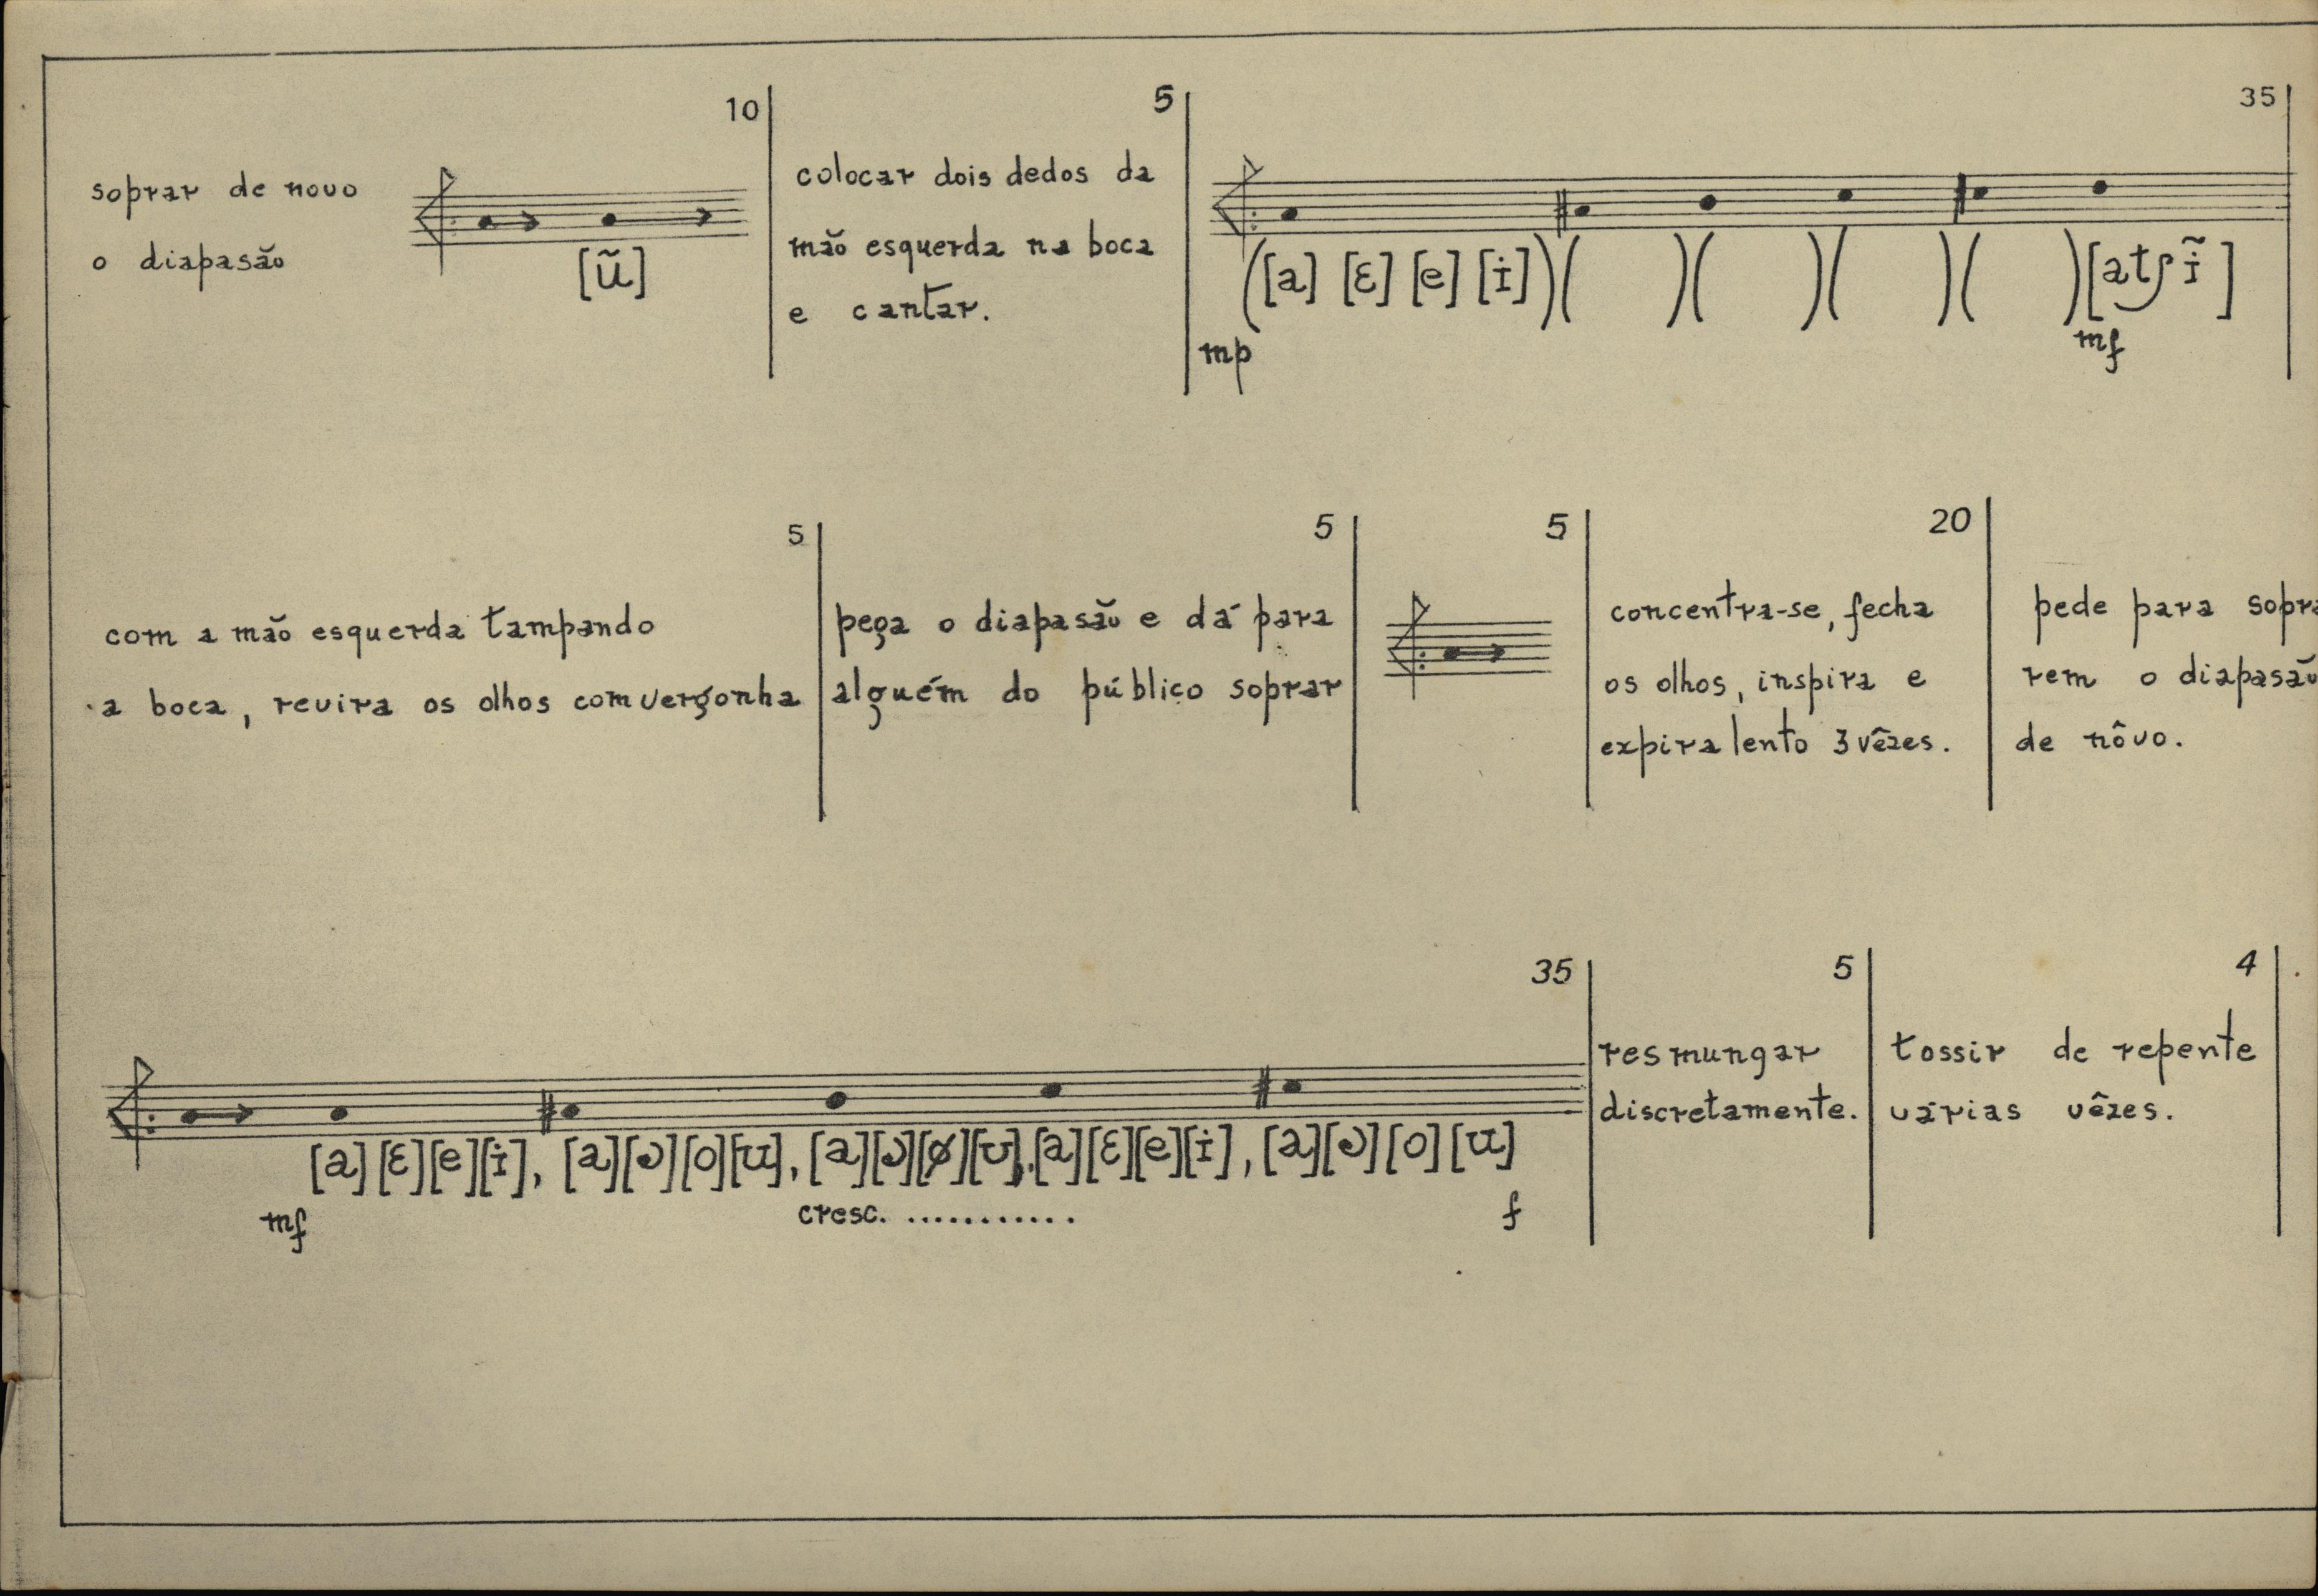 10
soprar de novo
o diapasão
[ũ]
5
colocar dois dedos da
mão esquerda na boca
e cantar.
35
([a] [ɛ] [e] [i])( )( )( )( )[atʃ ĩ]
mp mf
5
com a mão esquerda tampando
a boca, revira os olhos com vergonha
5
pega o diapasão e dá para
alguém do público soprar
5
20
concentra-se, fecha
os olhos, inspira e
expira lento 3 vêzes.
pede para sopra
rem o diapasão
de nôvo.
35
[a][ɛ][e][i], [a][ɔ][o][u], [a][ɔ][ø][u], [a][ɛ][e][i], [a][ɔ][o][u]
mf cresc. ........... f
5
resmungar
discretamente.
4
tossir de repente
várias vêzes.